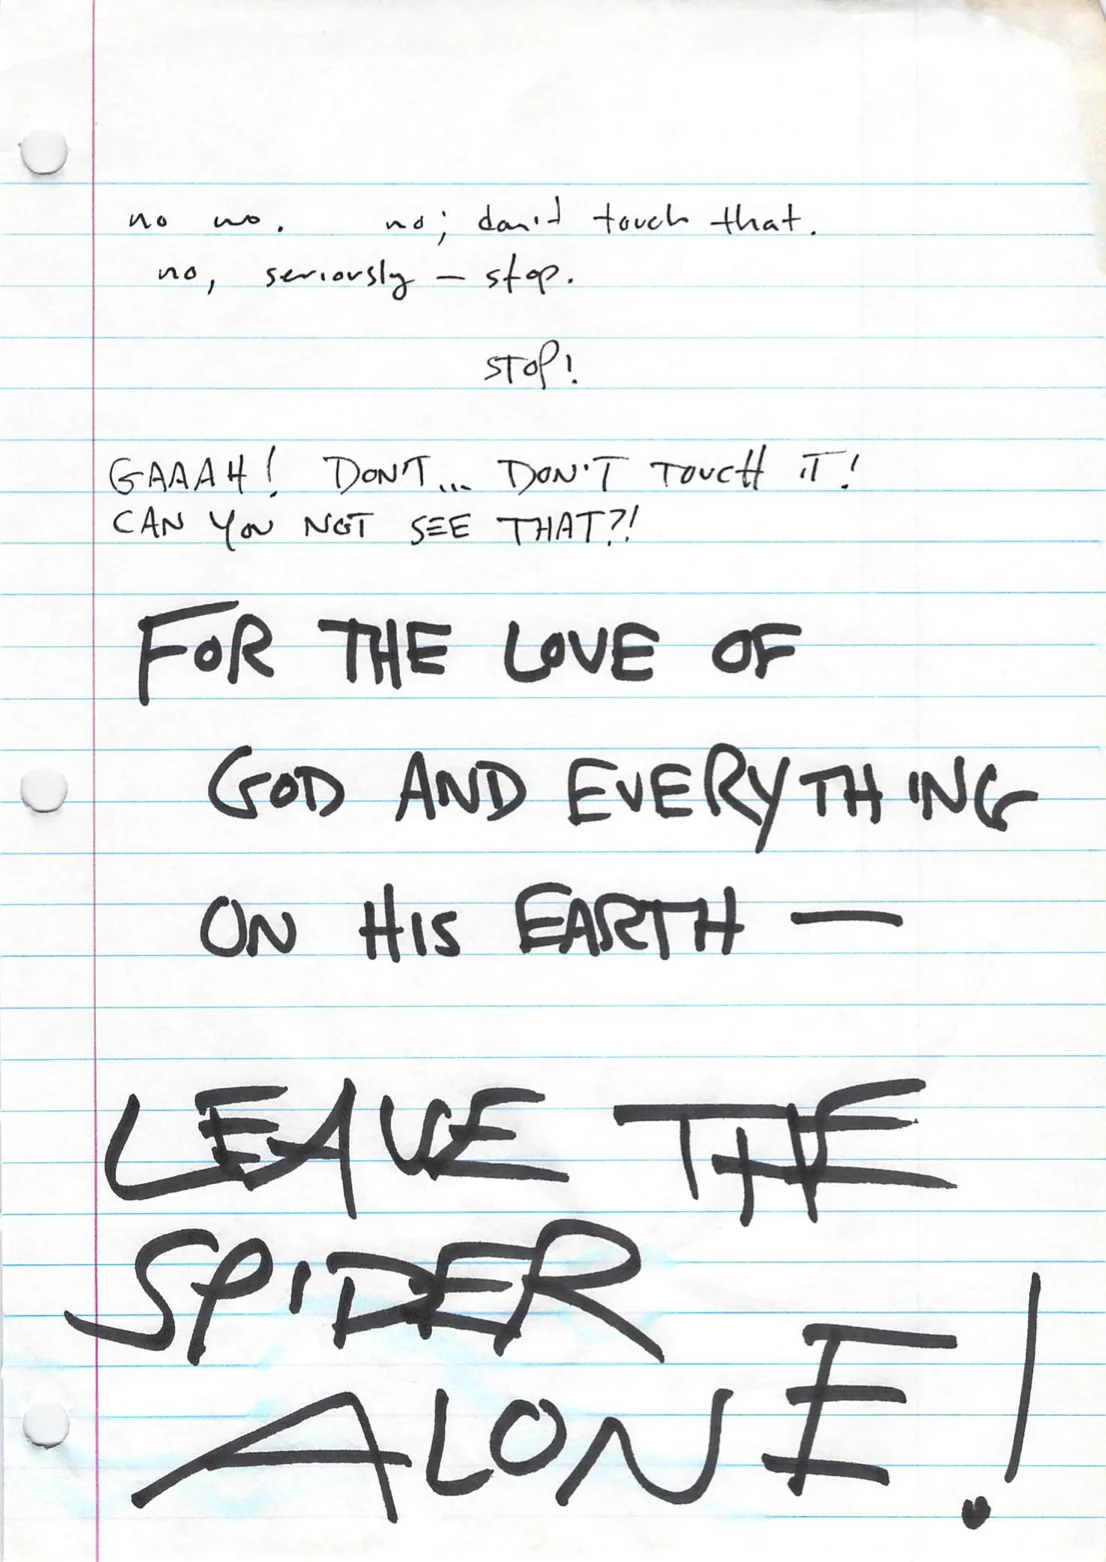 no no. no; don't touch that.
no, seriously — stop.
STOP!
GAAAH! DON'T... DON'T TOUCH IT!
CAN YOU NOT SEE THAT?!
FOR THE LOVE OF
GOD AND EVERYTHING
ON HIS EARTH —
LEAVE THE
SPIDER
ALONE!